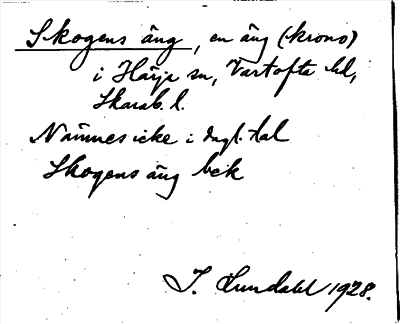 Skogens äng, en äng (krono)
i Härja sn, Vartofta hd,
Skarab. l.
Nämnes icke i dagl. tal
Skogens äng bek
I. Lundahl 1928.